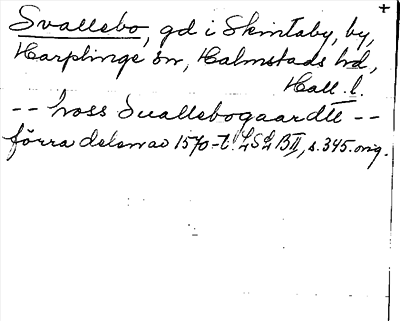 +
Svallebo, gd i Skintaby, by,
Harplinge sn, Halmstads hd,
Hall. l.
-- hoss Suallebogaardtt --
förra delen av 1570-t. LSL BII, s. 345. orig.